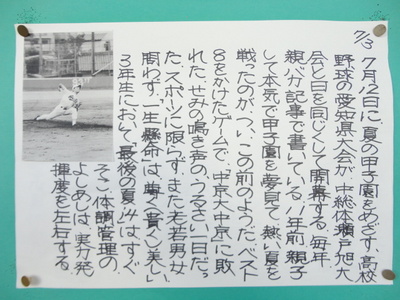 7/3
7月12日に、夏の甲子園をめざす、高校
野球の愛知県大会が、中総体瀬戸旭大
会と日を同じくして開幕する。毎年、
親バカ記事で書いている。11年前、親子
して本気で甲子園を夢見て、熱い夏を
戦ったのが、つい、この前のようだ。ベスト
8をかけたゲームで、「中京大中京」に敗
れた、せみの鳴き声の、うるさい一日だっ
た。スポーツに限らず、また老若男女
問わず、「一生懸命は、尊く(貴く)、美しい」
3年生において、「最後の夏」は、すぐ
そこ。体調管理の
よしあしは、実力発
揮度を左右する。